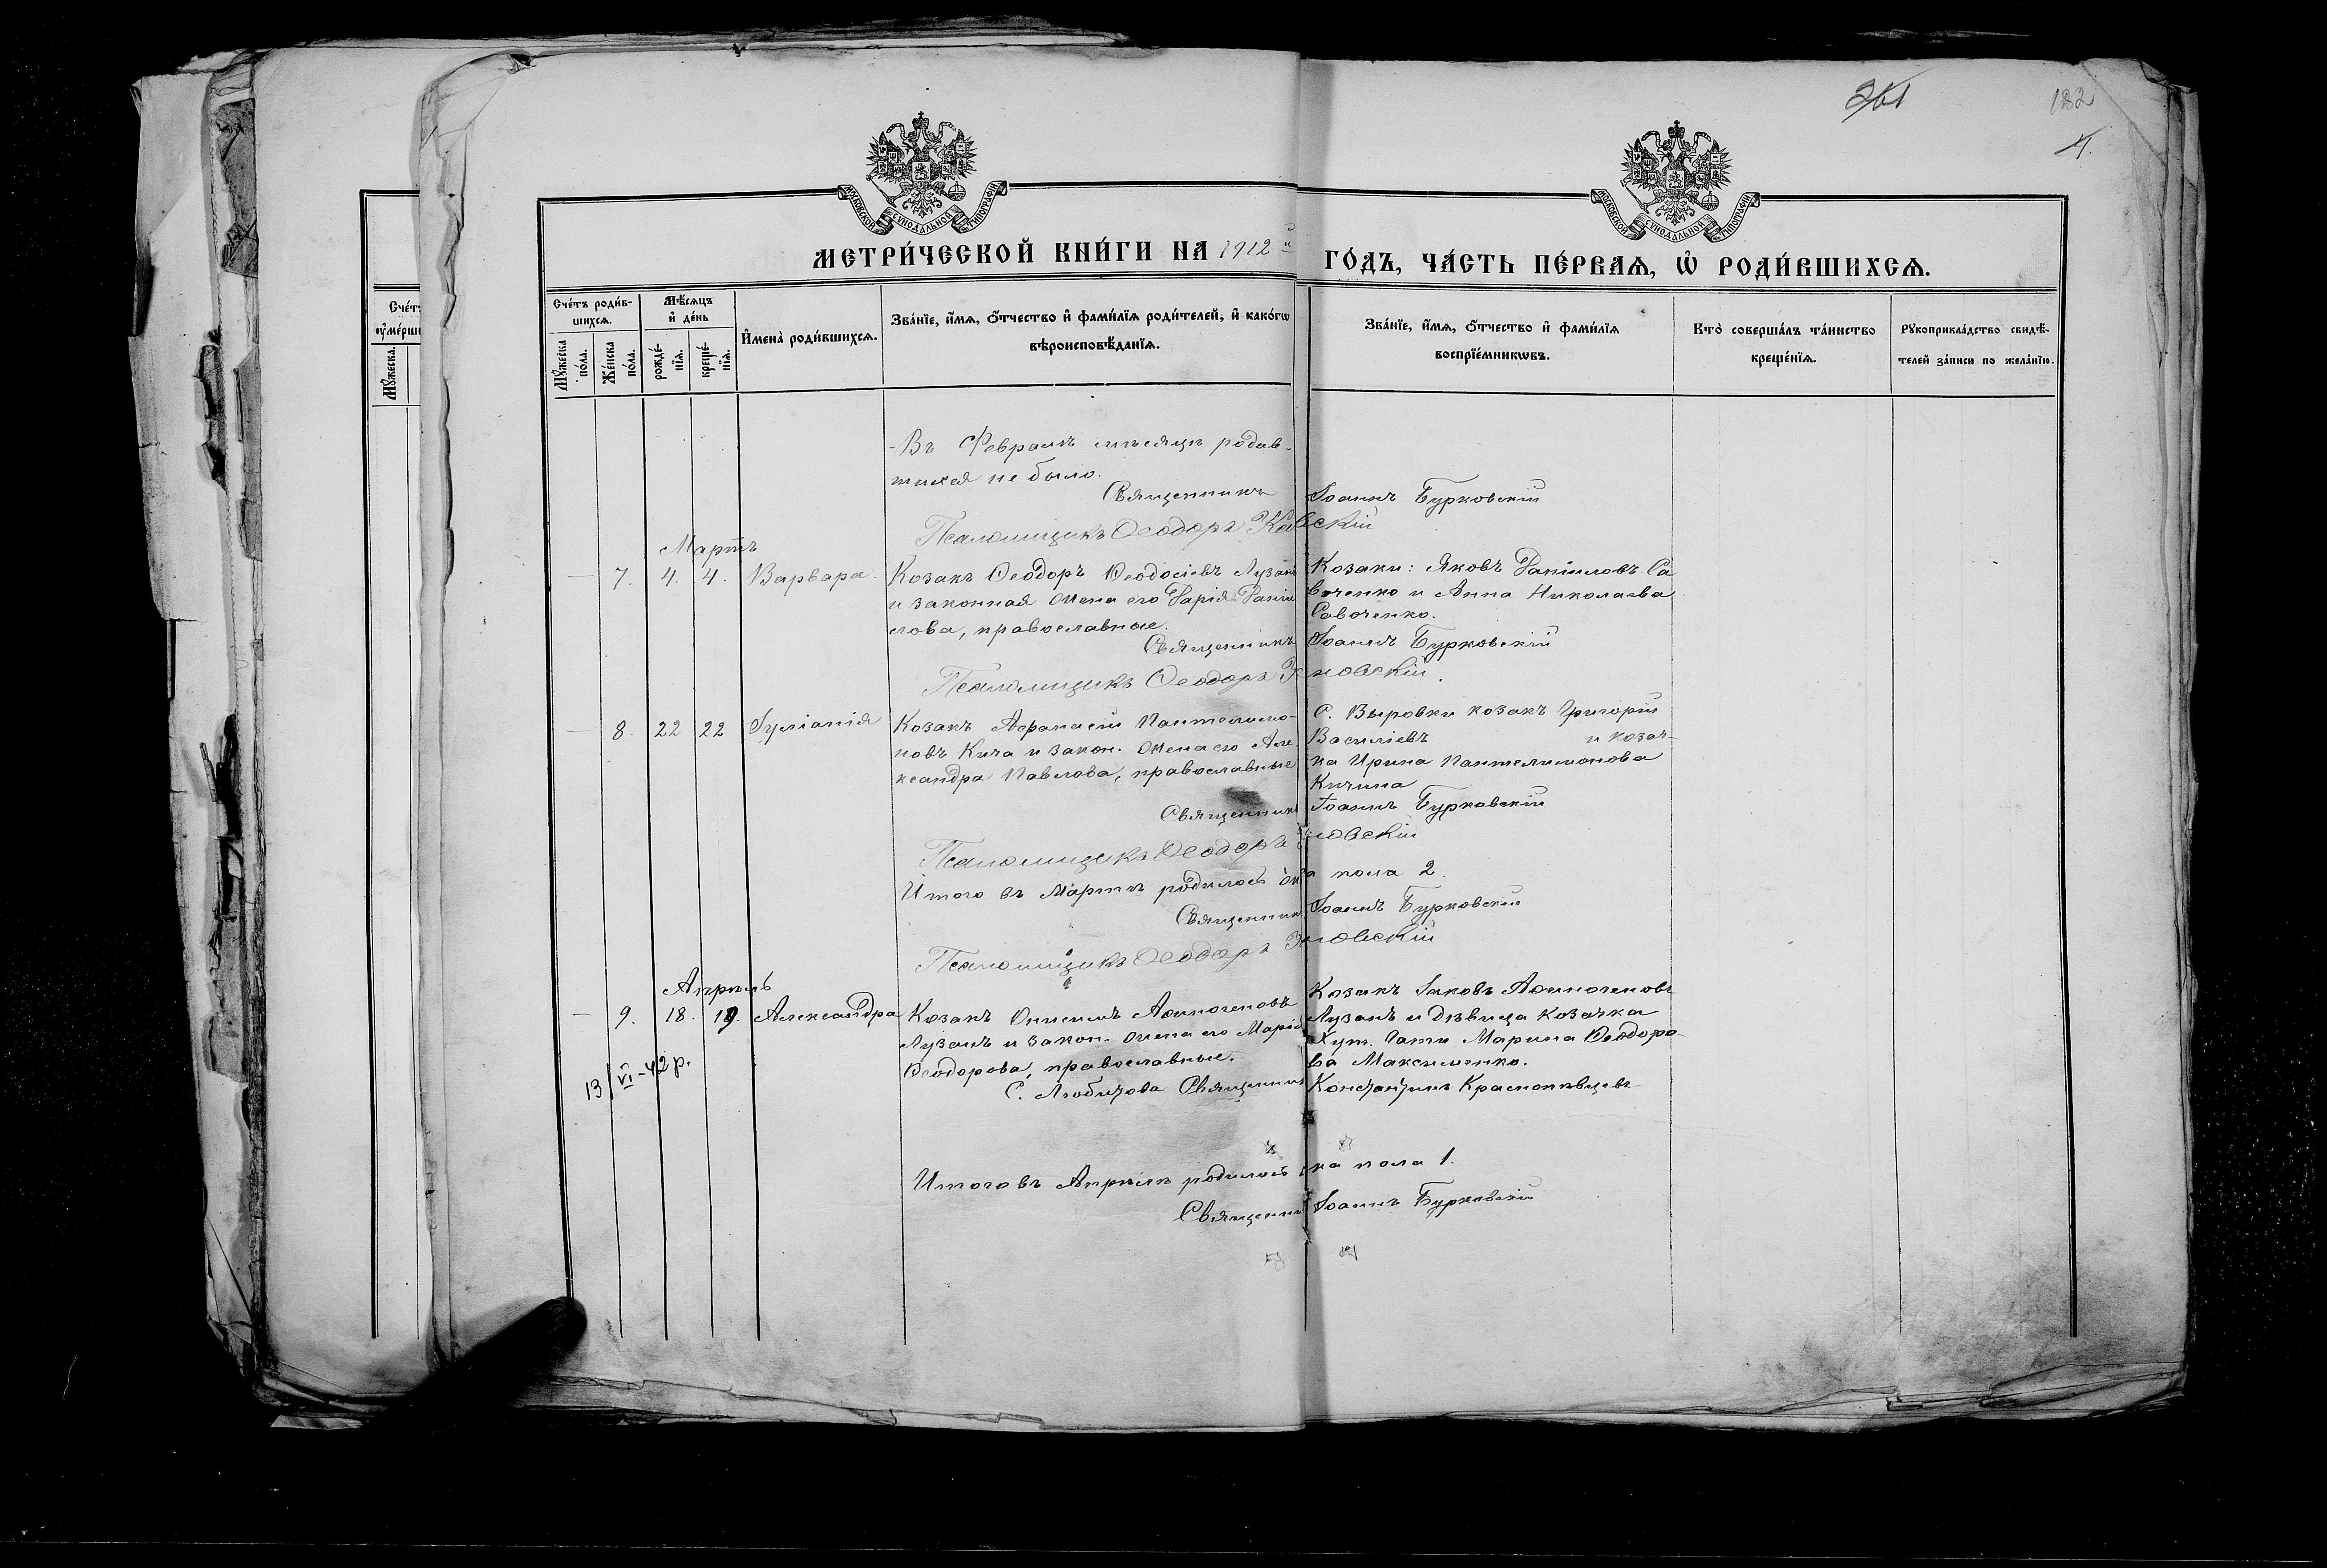 261
182
4.
МОСКОВСКОЙ СУНОДАЛЬНОЙ ТИПОГРАФІИ
МОСКОВСКОЙ СУНОДАЛЬНОЙ ТИПОГРАФІИ
МЕТРИ́ЧЕСКОЙ КНИ́ГИ НА 1912й ГО́ДЪ, ЧА́СТЬ ПЕ́РВАѦ, Ѡ҆ РОДИ́ВШИХСѦ.
Сче́тъ роди́в-
шихсѧ.
Мꙋ́жеска по́ла.
Же́нска по́ла.
Мѣ́сѧцъ
и҆ де́нь
рожде́-
нїѧ.
креще́-
нїѧ.
И҆мена̀ роди́вшихсѧ.
Зва́нїе, и҆́мѧ, ѻ҆́тчество и҆ фами́лїѧ роди́телей, и҆ како́гѡ
вѣроисповѣ́данїѧ.
Зва́нїе, и҆́мѧ, ѻ҆́тчество и҆ фами́лїѧ
воспрїе́мникѡвъ.
Кто̀ соверша́лъ та́инство
креще́нїѧ.
Рꙋкоприкла́дство свидѣ́-
телей за́писи по жела́нїю.
Сче́т
ᲂу҆ме́рши
Мꙋ́жеска.
Въ Февралѣ мѣсяцѣ родив-
шихся не было.
Священникъ Іоаннъ Бурковскій
Псаломщикъ Ѳеодоръ
Мартъ
— 7. 4. 4. Варвара.
Козакъ Ѳеодоръ Ѳеодосіевъ Лузанъ
и законная жена его Дарія Даніи
лова, православные.
Козаки: Яковъ Даніиловъ Са
вченко и Анна Николаева
Савченко.
Священникъ Іоаннъ Бурковскій
Псаломщикъ Ѳеодоръ
— 8. 22 22 Іуліанія
Козакъ Аѳанасій Пантелимо-
новъ Кича и закон. жена его Але
ксандра Павлова, православные
С. Выровки козакъ Григорій
Василіевъ и козач-
ка Ирина Пантелимонова
Кичина
Священникъ Іоаннъ Бурковскій
Псаломщикъ Ѳеодоръ
Итого въ Мартѣ родилось пола 2.
Священникъ Іоаннъ Бурковскій
Псаломщикъ Ѳеодоръ
Апрѣль
— 9. 18. 19. Александра
Козакъ Онисимъ Аѳиногеновъ
Лузанъ и закон. жена его Марія
Ѳеодорова, православные.
Козакъ Іаковъ Аѳиногеновъ
Лузанъ и дѣвица козачка
Хут. Гати Марина Ѳеодоро-
ва Максименко.
13/VI-42 р.
С. Любитова Священникъ Константинъ Краснопѣвцевъ
Итого въ Апрѣлѣ родилось ка пола 1.
Священник Іоаннъ Бурковскій